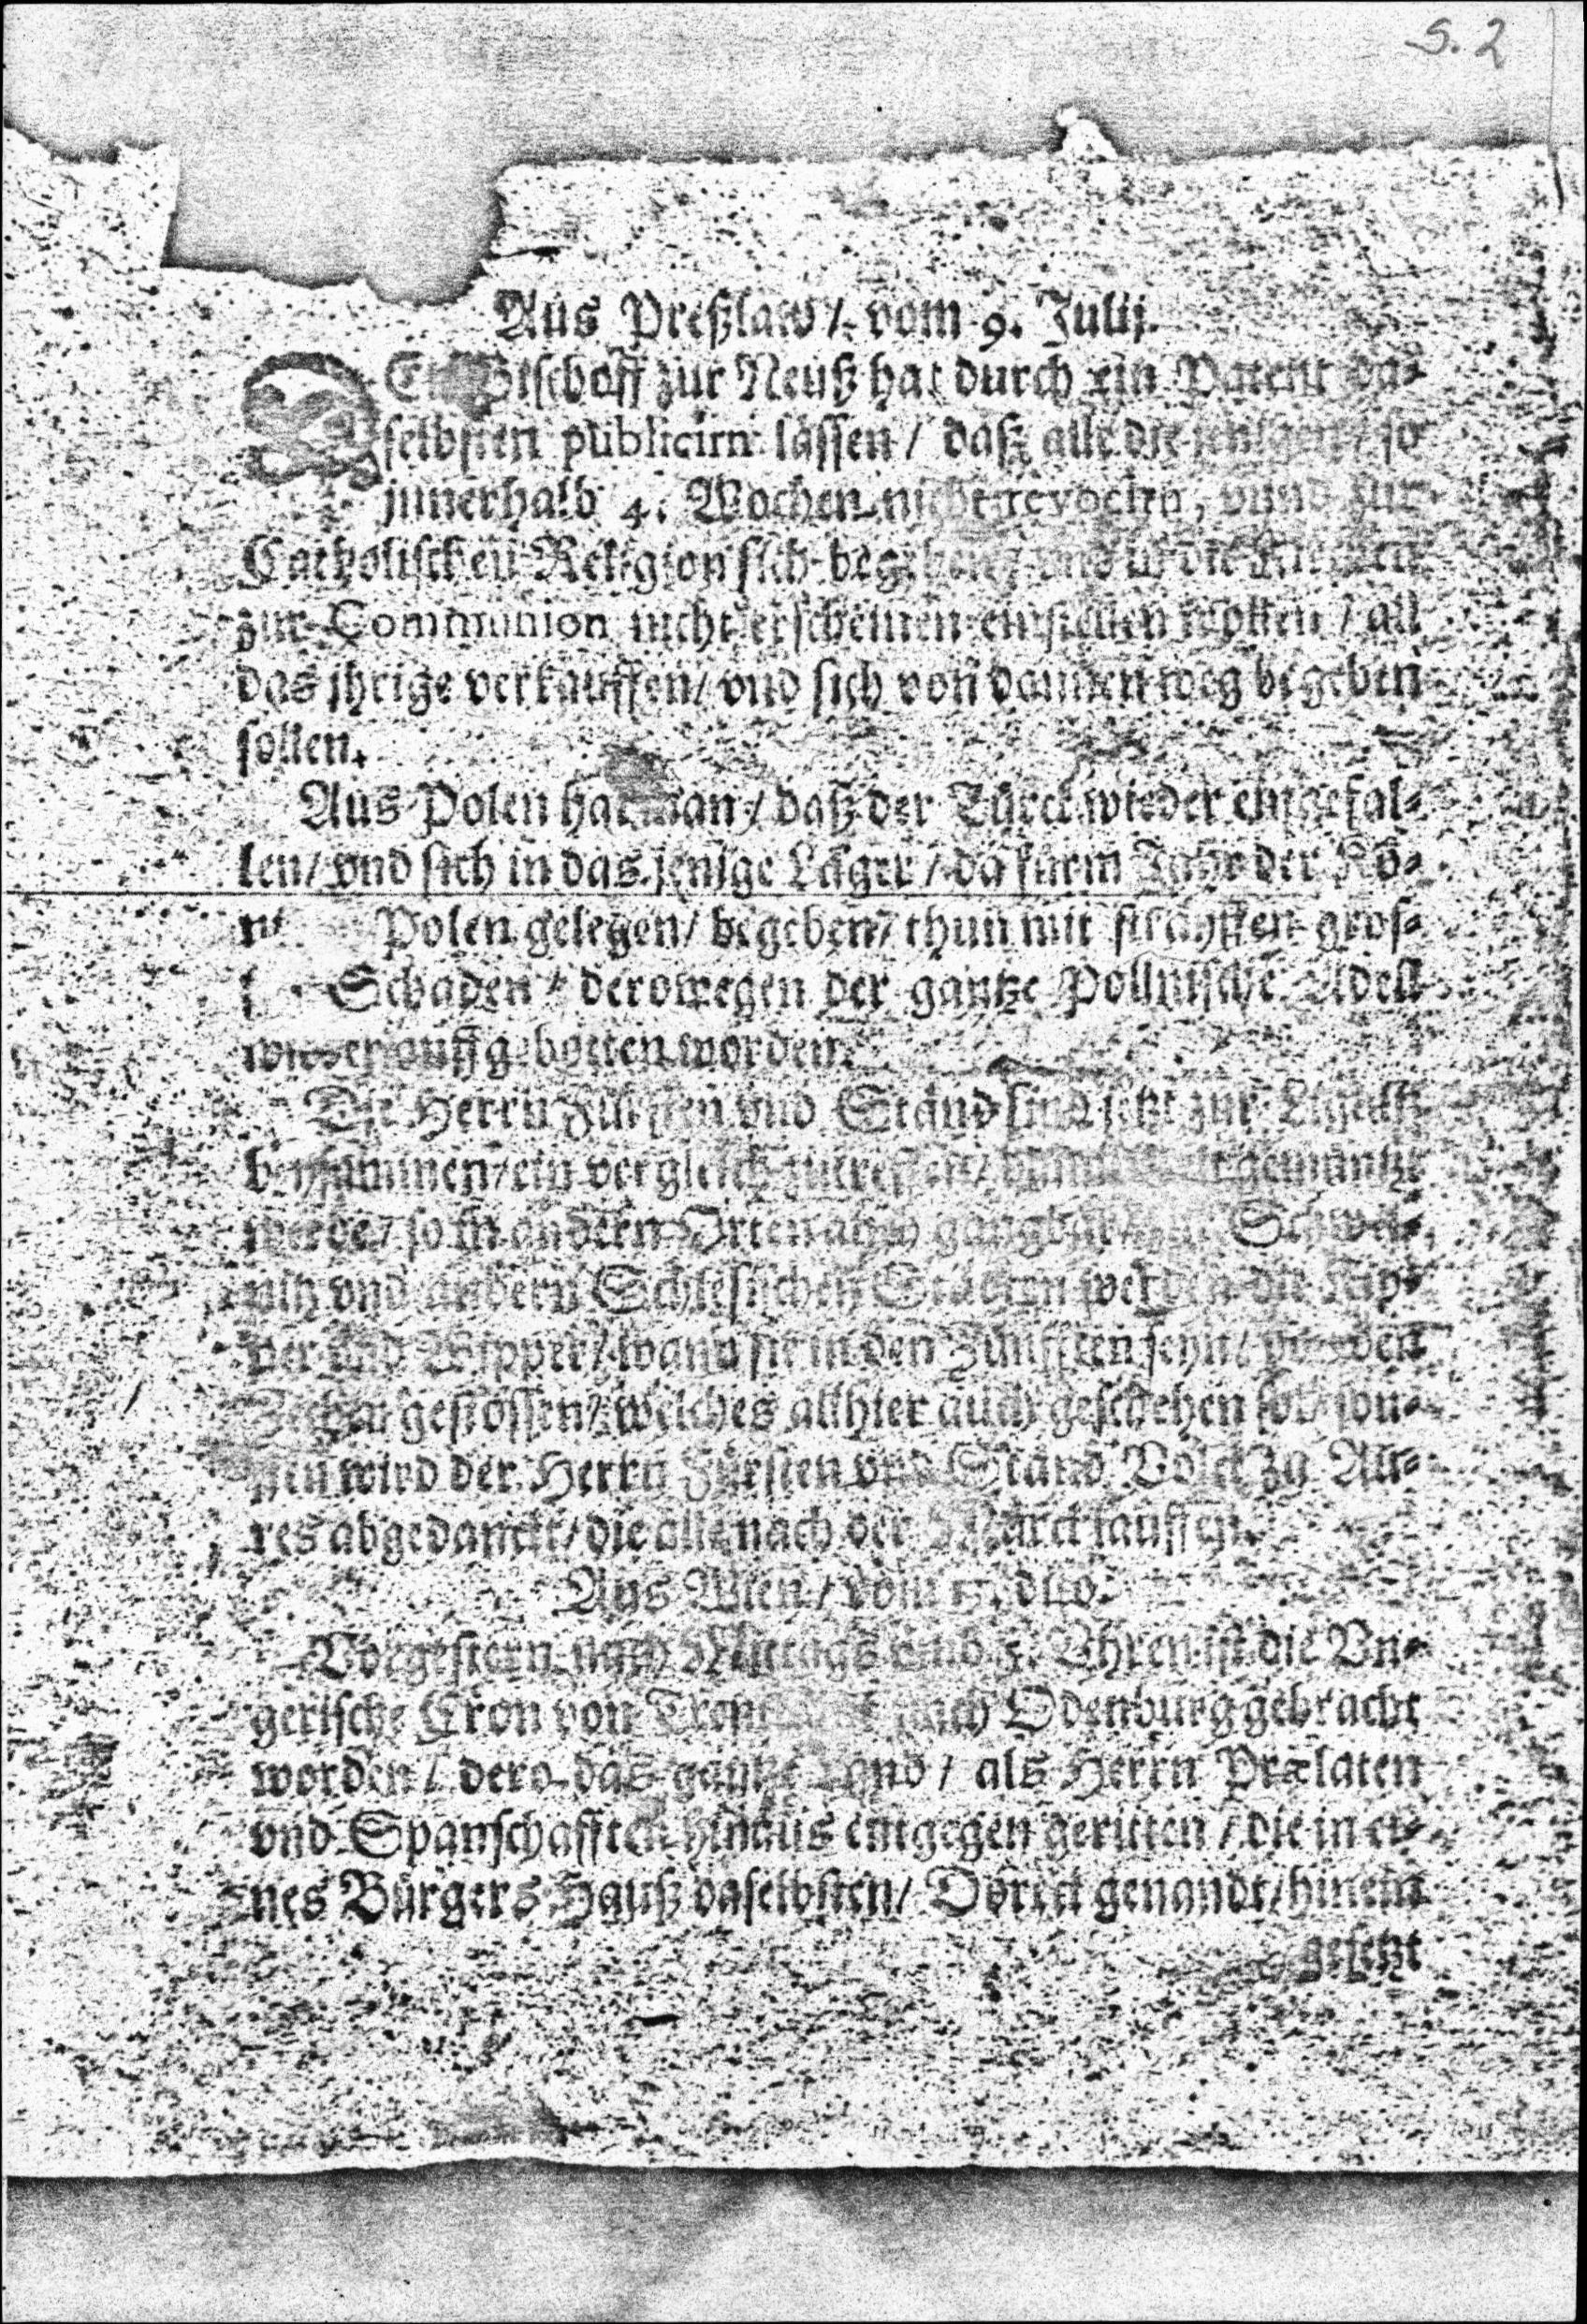 S. 2
Aus Preßlaw / vom 9. Julij.
DEr Bischoff zur Neuß hat durch ein Patent da-
selbsten publicirn lassen / daß alle die jenigen / so
jnnerhalb 4. Wochen nicht revocirn, vnnd zur
Catholischen Religion sich begeben / vnd in die Kirchen
zur Communion nicht erscheinen einstellen wollen / all
das jhrige verkauffen / vnd sich von dannen weg begeben
sollen.
Aus Polen hat man / daß der Türck wieder eingefal-
len / vnd sich in das jenige Läger / da fürm Jahr der Kö-
Polen gelegen / begeben / thun mit streyffen gros-
Schaden / derowegen der gantze Pollnische Adell
wieder auffgebotten worden.
Die Herrn Fürsten vnd Ständ sind jetzt zur
beysammen / ein vergleich zutreffen / gemüntzt
werde / so in andern Orten auch gangbar / Schweid-
nitz vnd andern Schlesischen Städten werden die Kip-
per vnd Wipper / wann sie in den Zünfften seyn / von den
Zechen gestossen / welches allhier auch geschehen sol / son-
sten wird der Herrn Fürsten vnd Ständ Volck zu
res abgedanckt / die alle nach der Marck lauffen.
Aus Wien / vom dito.
Vorgestern nach Mittags vmb 5. Vhren ist die Vn-
gerische Cron von nach Odenburg gebracht
worden / dero das gantze Land / als Herrn Prælaten
vnd Spanschafften hinaus entgegen geritten / die in ei-
nes Bürgers Hauß daselbsten / Döreck genandt / hinein
gesetzt